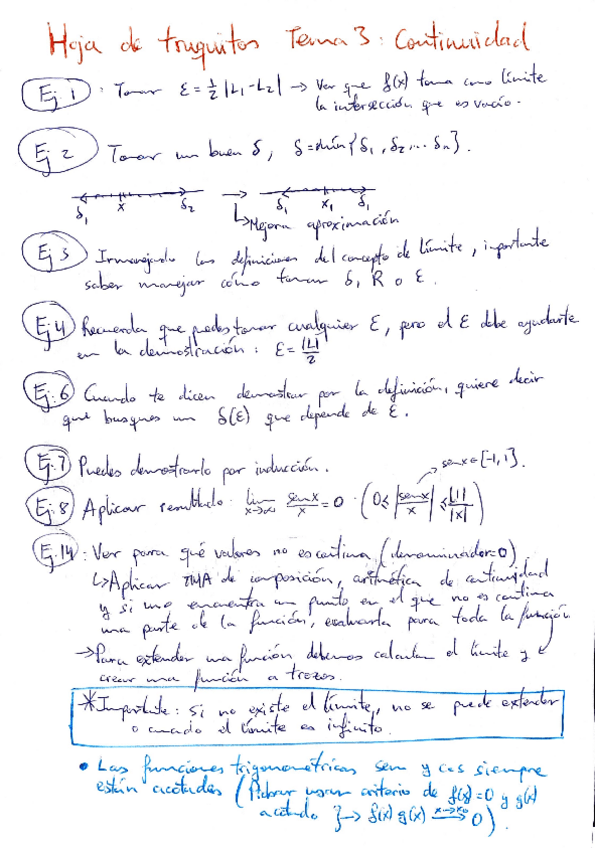 Hoja de truquitos Tema 3: Continuidad
Ej 1 : Tomar ε = 1/2 |L₁-L₂| → Ver que f(x) toma como límite
la intersección que es vacío.
Ej 2 Tomar un buen δ, δ = mín{δ₁, δ₂, ... δₙ}.
δ₁ x δ₂ → δ₁ x₁ δ₁
↳ Mejora aproximación
Ej 3 Ir manejando las definiciones del concepto de límite, importante
saber manejar cómo tomar δ, R o ε.
Ej 4 Recuerda que puedes tomar cualquier ε, pero el ε debe ayudarte
en la demostración: ε = |L|/2
Ej. 6 Cuando te dicen demostrar por la definición, quiere decir
que busques un δ(ε) que depende de ε.
Ej. 7 Puedes demostrarlo por inducción.
sen x ∈ [-1, 1].
Ej. 8 Aplicar resultado lim x→∞ sen x/x = 0 · (0 ≤ |sen x/x| ≤ |1|/|x|)
Ej. 14 : Ver para qué valores no es continua (denominador=0)
↳ Aplicar TMA de composición, aritmética de continuidad
y si uno encuentra un punto en el que no es continua
una parte de la función, evaluarla para toda la función
→ Para extender una función debemos calcular el límite y
crear una función a trozos.
* Importante: Si no existe el límite, no se puede extender
o cuando el límite es infinito.
• Las funciones trigonométricas sen y cos siempre
están acotadas (Podrar usar criterio de f(x)=0 y g(x)
acotado } → f(x) g(x) x→x₀ 0).